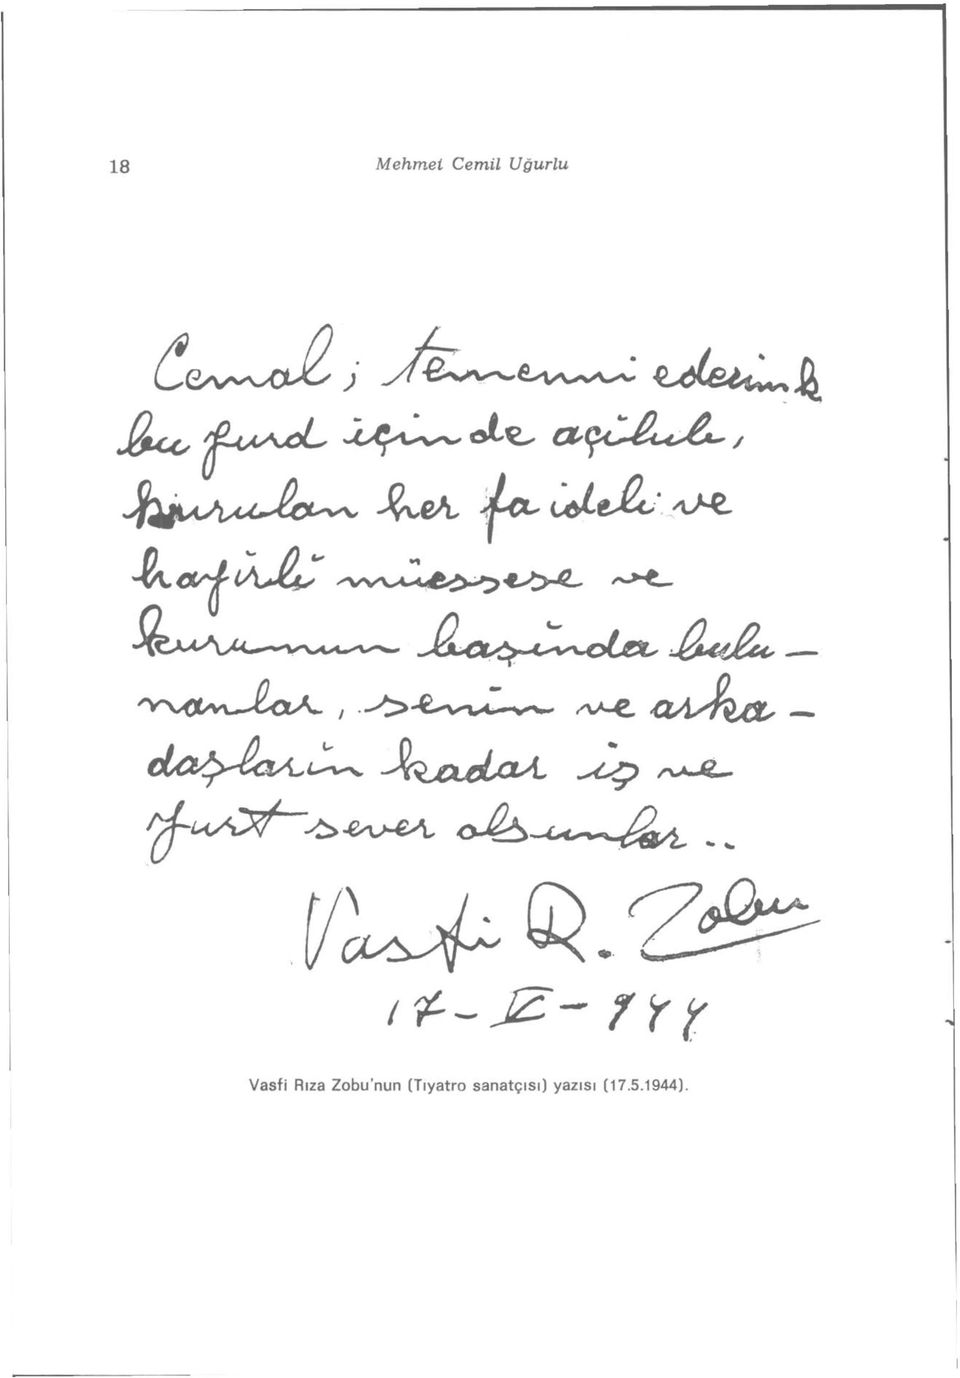 18 Mehmet Cemil Uğurlu
Cemal; temenni ederim k
bu yurd içinde açılılı,
kurulan her faideli ve
hayırlı müessese ve
kurumun başında bulu-
nanlar, senin ve arka-
daşların kadar iş ve
yurt sever olsunlar..
Vasfi R. Zobu
17-V-944
Vasfi Rıza Zobu'nun (Tiyatro sanatçısı) yazısı (17.5.1944).